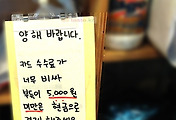 양해 바랍니다.
카드 수수료가
너무 비싸
부득이 5,000원
미만은 현금으로